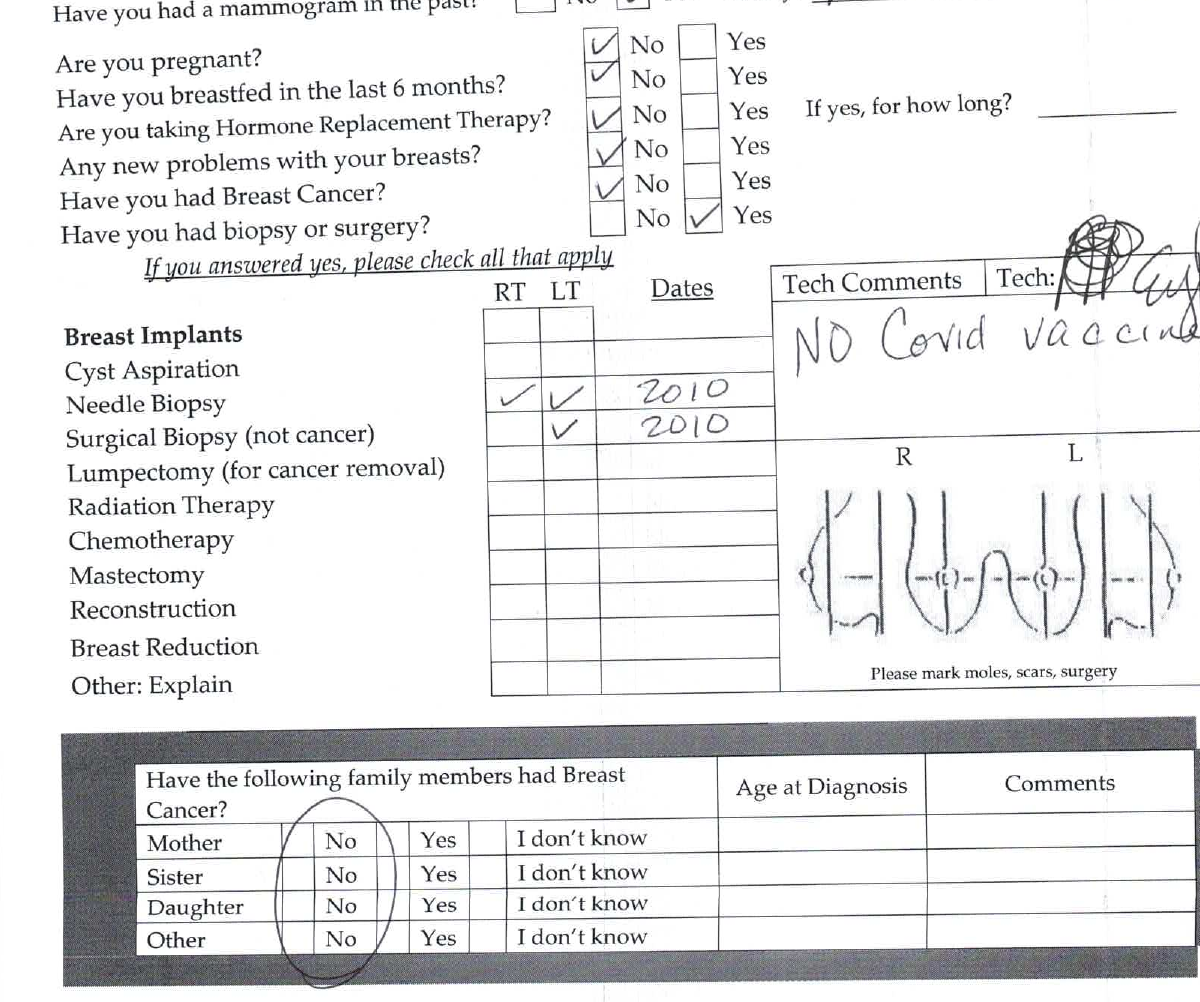 Have you had a mammogram in the past? No
Are you pregnant? ✓ No Yes
Have you breastfed in the last 6 months? ✓ No Yes
Are you taking Hormone Replacement Therapy? ✓ No Yes If yes, for how long?
Any new problems with your breasts? ✓ No Yes
Have you had Breast Cancer? ✓ No Yes
Have you had biopsy or surgery? No ✓ Yes
If you answered yes, please check all that apply
RT LT Dates
Tech Comments Tech:
NO Covid vaccine
Breast Implants
Cyst Aspiration
Needle Biopsy ✓ ✓ 2010
Surgical Biopsy (not cancer) ✓ 2010
Lumpectomy (for cancer removal)
Radiation Therapy
Chemotherapy
Mastectomy
Reconstruction
Breast Reduction
Other: Explain
R L
Please mark moles, scars, surgery
Have the following family members had Breast
Cancer?
Age at Diagnosis Comments
Mother No Yes I don't know
Sister No Yes I don't know
Daughter No Yes I don't know
Other No Yes I don't know